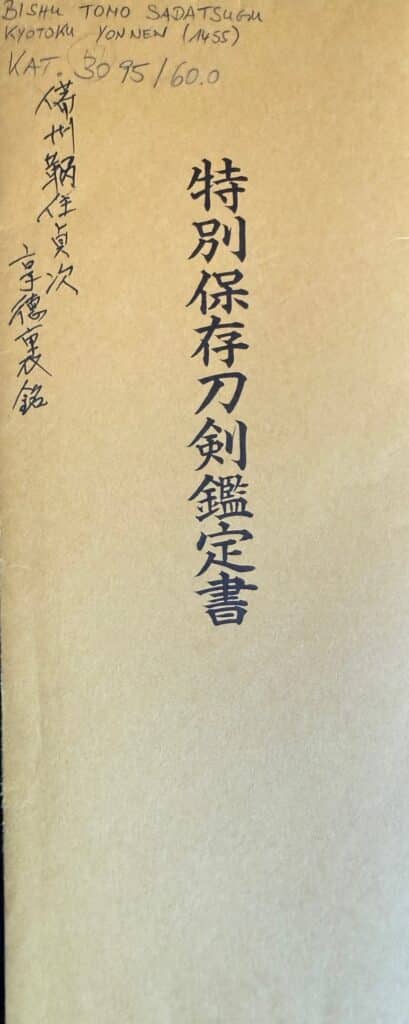 BISHU TOMO SADATSUGU
KYOTOKU YONNEN (1455)
KAT. 30 95/60.0
備州鞆住貞次
享徳裏銘
特別保存刀剣鑑定書